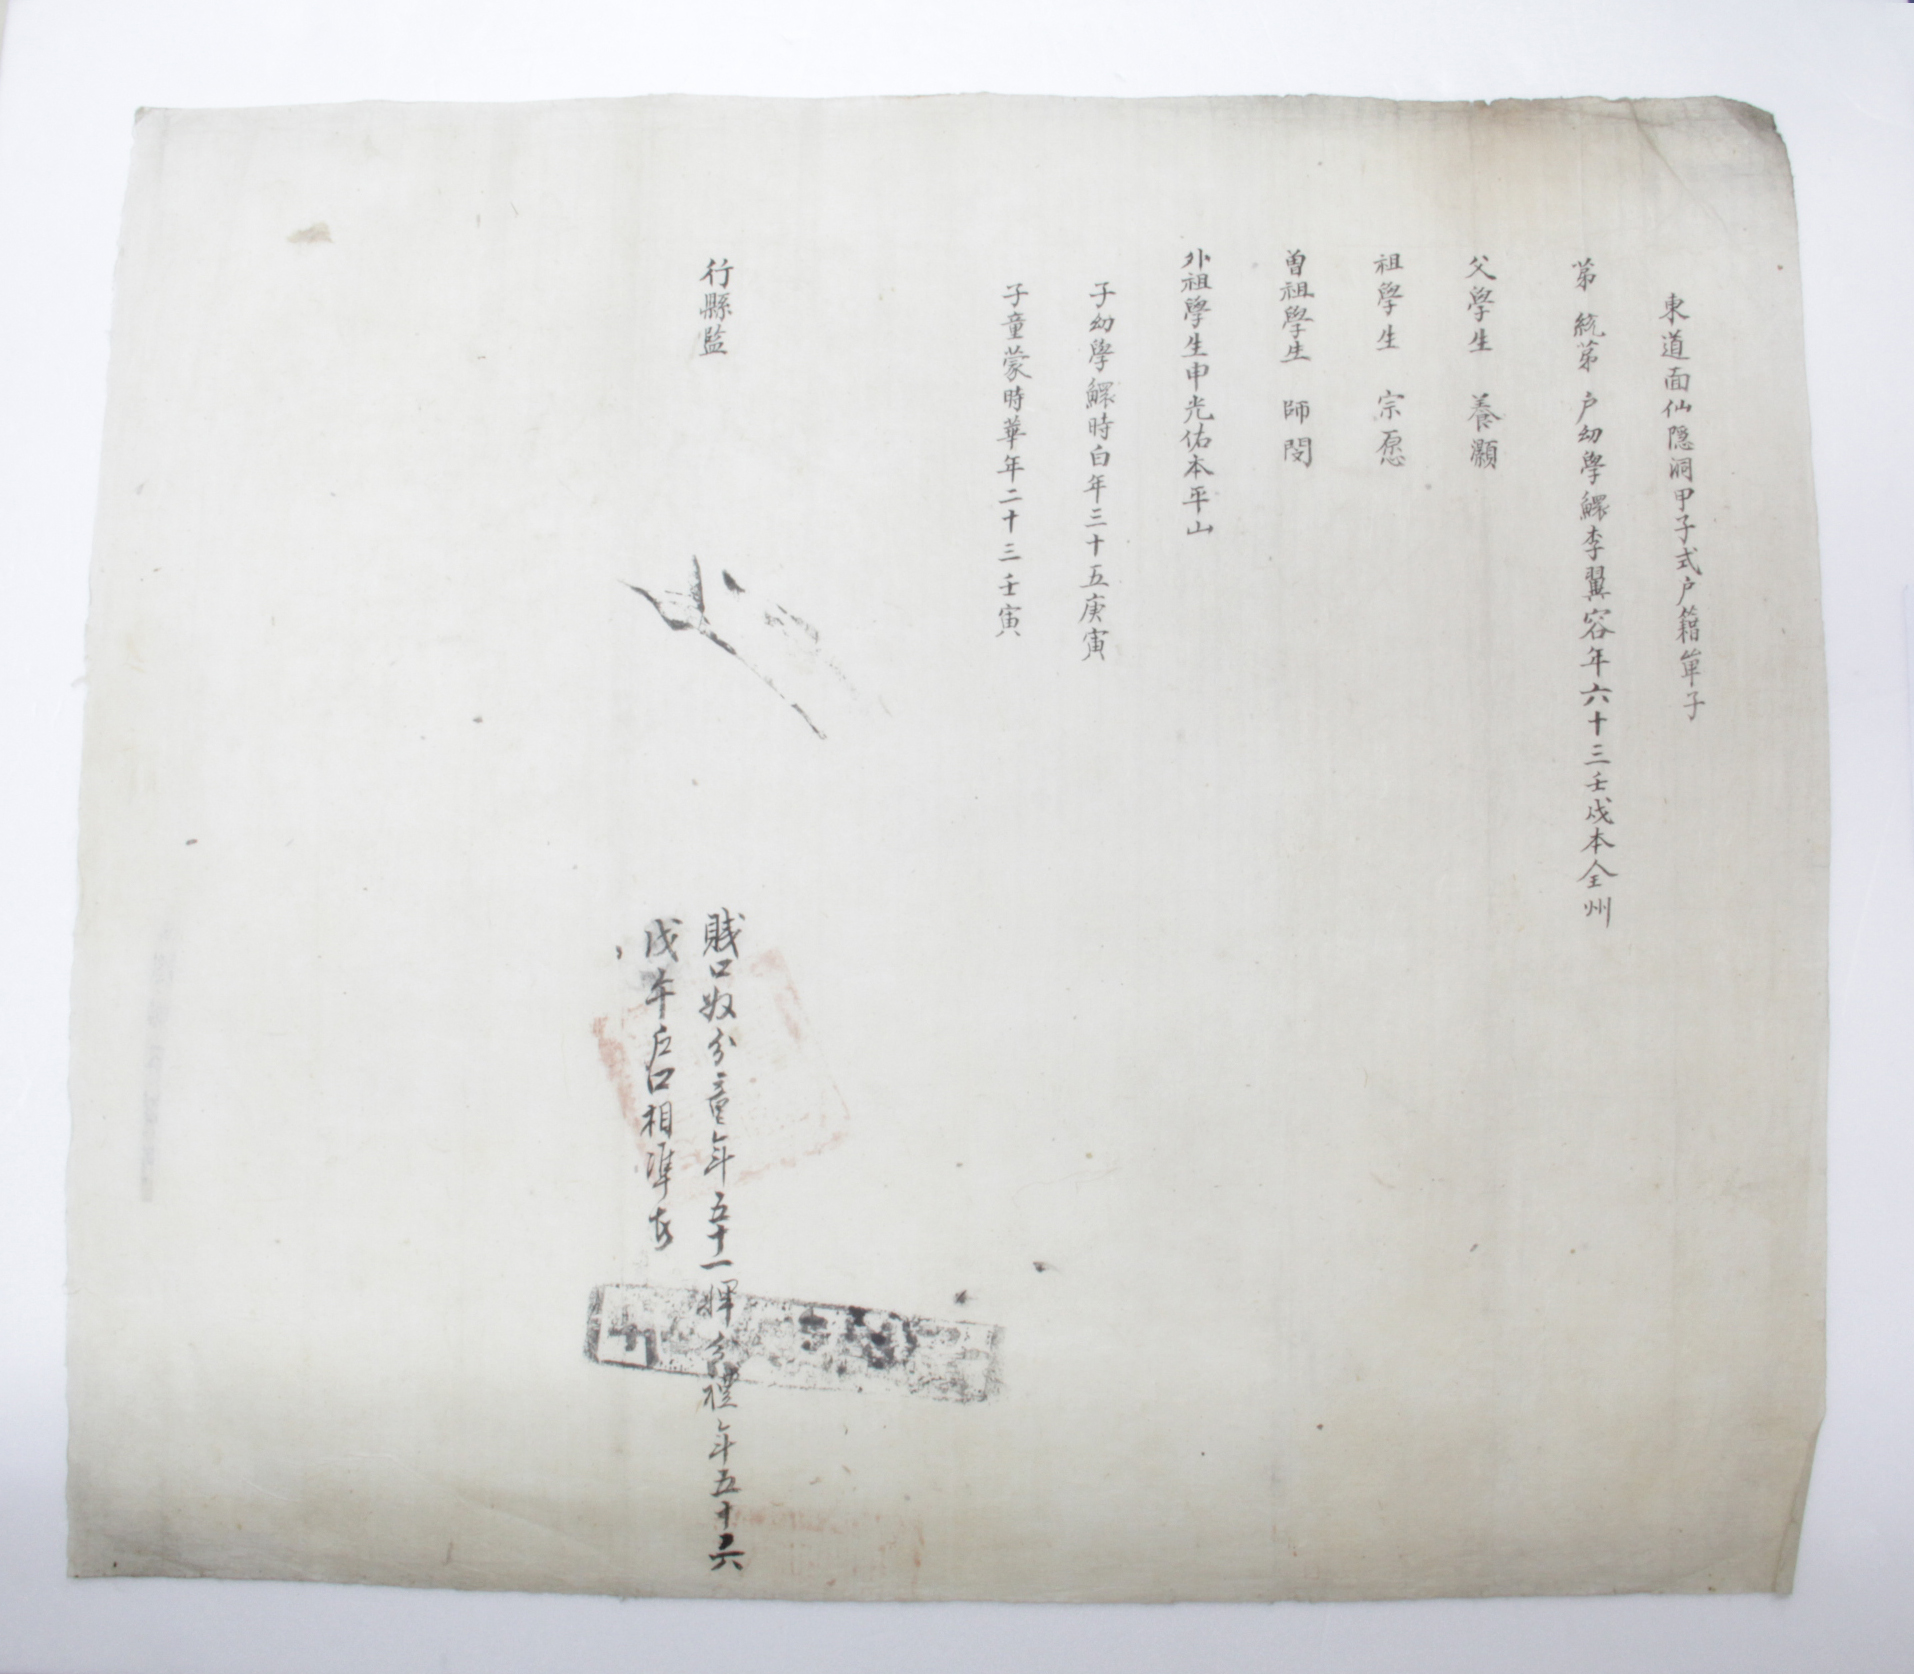 東道面仙隱洞甲子式户籍單子
第 統第 户幼學鰥李翼容年六十三壬戌本全州
父學生 養灝
祖學生 宗愿
曾祖學生 師閔
外祖學生申光佑本平山
子幼學鰥時白年三十五庚寅
子童蒙時華年二十三壬寅
行縣監
賤口奴分童年五十一婢分禮年五十六
戊午户口相準者